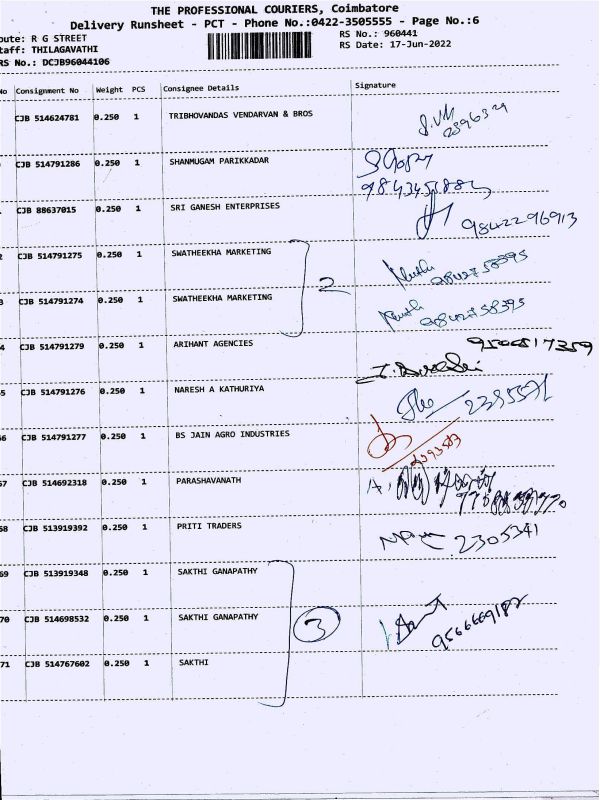 THE PROFESSIONAL COURIERS, Coimbatore
Delivery Runsheet - PCT - Phone No.:0422-3505555 - Page No.:6
oute: R G STREET
RS No.: 960441
taff: THILAGAVATHI
RS Date: 17-Jun-2022
RS No.: DCJB96044106
No Consignment No Weight PCS Consignee Details Signature
CJB 514624781 0.250 1 TRIBHOVANDAS VENDARVAN & BROS
CJB 514791286 0.250 1 SHANMUGAM PARIKKADAR
CJB 88637015 0.250 1 SRI GANESH ENTERPRISES
9842296913
2 CJB 514791275 0.250 1 SWATHEEKHA MARKETING
9842758395
2
3 CJB 514791274 0.250 1 SWATHEEKHA MARKETING
9842758395
4 CJB 514791279 0.250 1 ARIHANT AGENCIES
9500817359
65 CJB 514791276 0.250 1 NARESH A KATHURIYA
66 CJB 514791277 0.250 1 BS JAIN AGRO INDUSTRIES
67 CJB 514692318 0.250 1 PARASHAVANATH
68 CJB 513919392 0.250 1 PRITI TRADERS
2305341
69 CJB 513919348 0.250 1 SAKTHI GANAPATHY
70 CJB 514698532 0.250 1 SAKTHI GANAPATHY
3
71 CJB 514767602 0.250 1 SAKTHI